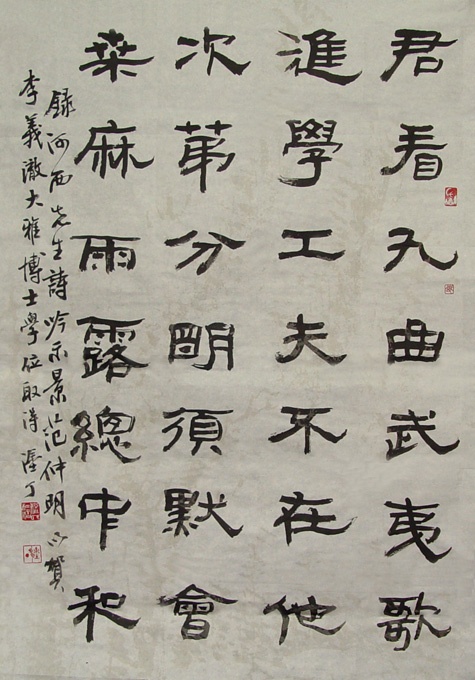 君看九曲武夷歌
進學工夫不在他
次第分明須默會
桑麻雨露總中和
錄河西先生詩吟示景范仲明以賀
李義澈大雅博士學位取得